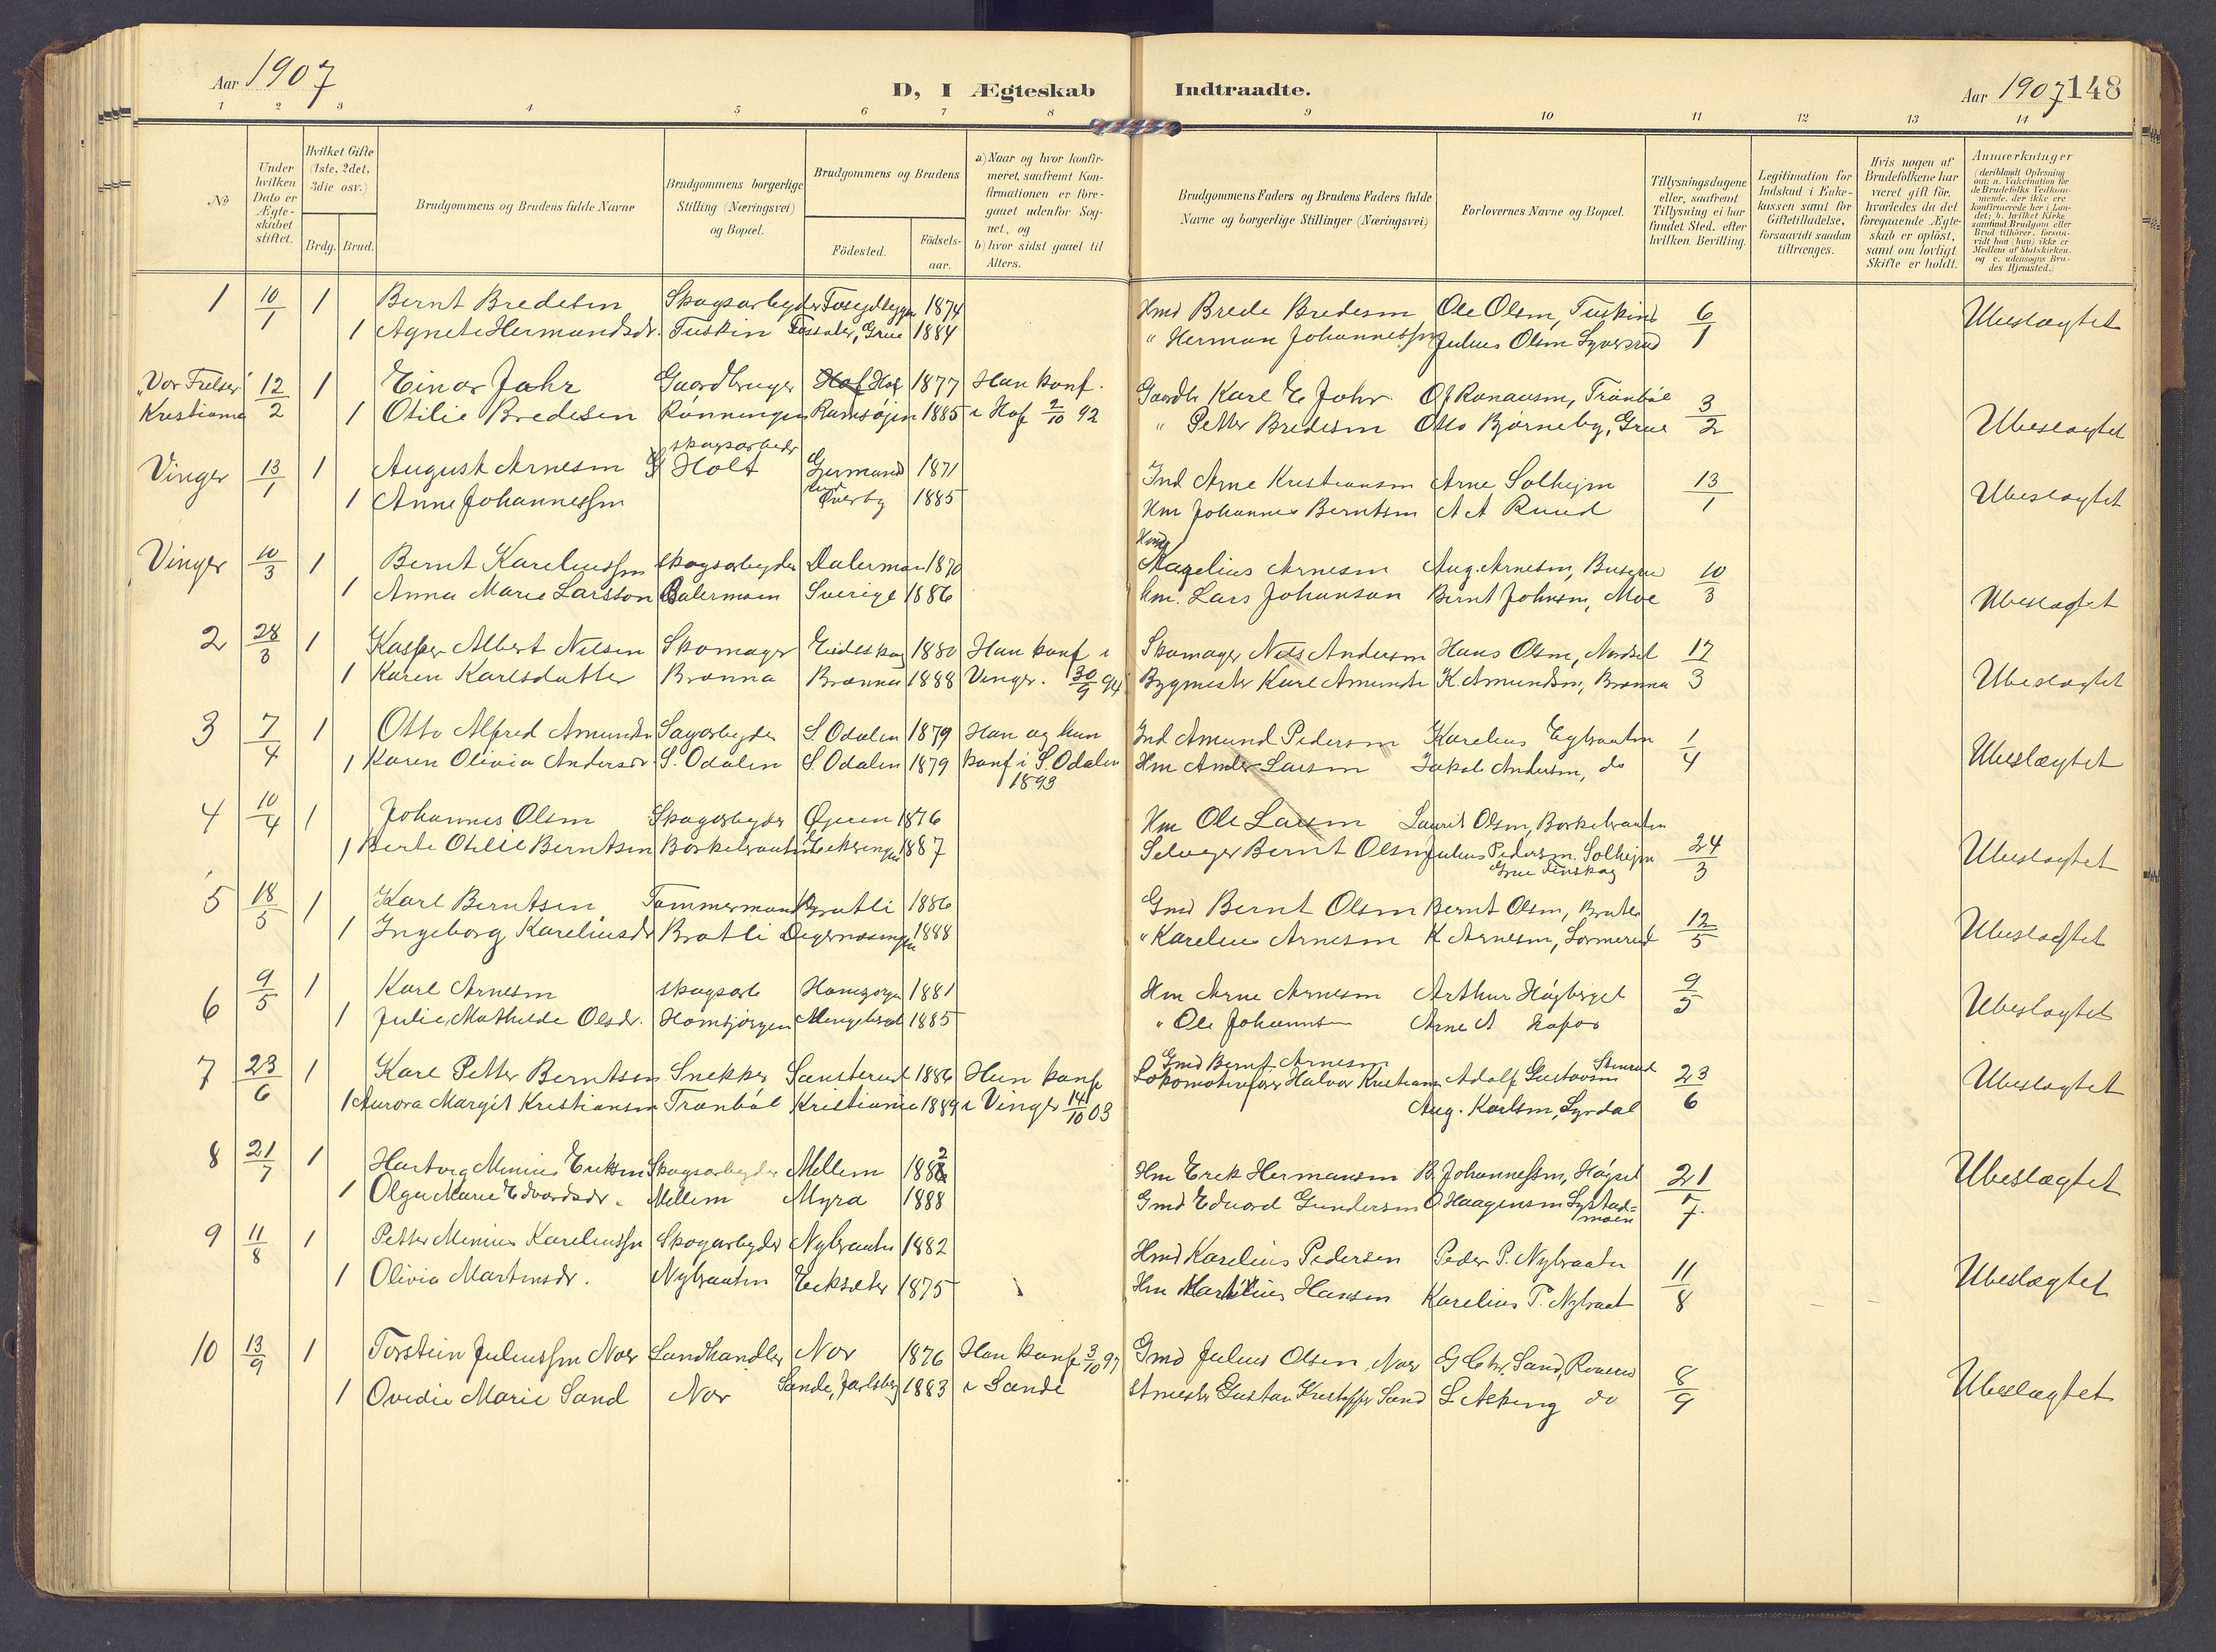 Aar 1907
D, I Ægteskab Indtraadte.
Aar 1907 148
1 2 3 4 5 6 7 8 9 10 11 12 13 14
No
Under hvilken Dato er Ægteskabet stiftet.
Hvilket Gifte (1ste, 2det, 3die osv.)
Brdg. Brud.
Brudgommens og Brudens fulde Navne
Brudgommens borgerlige Stilling (Næringsvei) og Bopæl.
Brudgommens og Brudens
Fødested.
Fødselsaar.
a) Naar og hvor konfirmeret, saafremt Konfirmationen er foregaaet udenfor Sognet, og
b) hvor sidst gaaet til Alters.
Brudgommens Faders og Brudens Faders fulde Navne og borgerlige Stillinger (Næringsvei)
Forlovernes Navne og Bopæl.
Tillysningsdagene eller, saafremt Tillysning ei har fundet Sted, efter hvilken Bevilling.
Legitimation for Indskud i Enkekassen samt for Giftetilladelse, forsaavidt saadan tiltrænges.
Hvis nogen af Brudefolkene har været gift før, hvorledes da det foregaaende Ægteskab er opløst, samt om lovligt Skifte er holdt.
Anmærkninger (deriblandt Oplysning om: a. Vakcination for de Brudefolks Vedkommende, der ikke ere konfirmerede her i Landet; b. hvilket Kirkesamfund Brudgom eller Brud tilhører, forsaavidt han (hun) ikke er Medlem af Statskirken, og c. udensogns Brudes Hjemsted.)
1 10/1 1 Bernt Bredesen Skogsarbeyder 1874 Hmd Brede Bredesen Ole Olsen, Tuskind 6/1 Ubeslægtet
1 Agnete Hermandsdr. Tuskin Grue 1884 " Herman Johannessen Julius Olsen Syversrud
"Vor Frelser" Kristiania 12/2 1 Einar Jahr Gaardbruger Hof 1877 Han konf. Gaardb Karl E Jahr 3/2 Ubeslægtet
1 Otilie Bredesen Rønningen 1885 i Hof 2/10 92 " Petter Bredesen Otto Bjørneby, Grue
Vinger 13/1 1 August Arnesen skogsarbeider Holt 1871 Ind Arne Kristiansen Arne Solhejm 13/1 Ubeslægtet
1 Anne Johannessen Øverby 1885 Hm Johannes Berntsen A A Ruud
Vinger 10/3 1 Bernt Kareliussen skogsarbeyder Dalermoen 1870 Hmd Karelius Arnesen Aug. Arnesen, 10/3 Ubeslægtet
1 Anna Marie Larsson Dalermoen Sverige 1886 Hm. Lars Johanson Bernt Johnsen, Moe
2 28/3 1 Kasper Albert Nilsen Skomager Eideskog 1880 Han konf i Skomager Nils Andersen Hans Olsen, 17/3 Ubeslægtet
1 Karen Karlsdatter Brænna Brænna 1888 Vinger. 30/9 94 Bygmester Karl Amundsen K. Amundsen, Brænna
3 7/4 1 Otto Alfred Amundsen Sagarbeyder S. Odalen 1879 Han og hun Ind Amund Pedersen Karelius 1/4 Ubeslægtet
1 Karen Olivia Andersdr. S. Odalen S. Odalen 1879 konf i S. Odalen 1893 Hm Anders Larsen Jakob Andersen, do
4 10/4 1 Johannes Olsen Skogarbeyder Øieren 1876 Hm Ole Larsen Laurits Olsen, Borkebraaten 24/3 Ubeslægtet
1 Berte Otilie Berntsen Borkebraaten 1887 Selveger Bernt Olsen Julius Pedersen. Solhejm Grue Finskog
5 18/5 1 Karl Berntsen Tømmermand Bratli 1886 Gmd Bernt Olsen Bernt Olsen, Bratli 12/5 Ubeslægtet
1 Ingeborg Kareliusdr Bratli 1888 " Karelius Arnesen K. Arnesen, Sormerud
6 9/5 1 Karl Arnesen skogsarb 1881 Hm Arne Arnesen Arthur Høgberget 9/5 Ubeslægtet
1 Julie Mathilde Olsdr. 1885 " Ole Johannes Arne A
7 23/6 1 Karl Petter Berntsen Snekker 1886 Hun konf Gmd Bernt Arnesen Adolf Gustavsen Stenrud 23/6 Ubeslægtet
1 Aurora Margit Kristiansen Tranbøl Kristiania 1889 i Vinger 14/10 03 Lokomotivfører Halvor Kristians Aug. Karlsen, Lyrdal
8 21/7 1 Hartvig Minius Eriksen Skogsarbeyder Mellem 1882 Hm Erik Hermansen B. Johannessen, 21/7 Ubeslægtet
1 Olga Marie Edvardsdr. Mellem Myra 1888 Gmd Edvard Gundersen O. Haagensen Lystadmoen
9 11/8 1 Petter Minius Kareliussen Skogarbeyder Nybraaten 1882 Hmd Karelius Pedersen Peder P. Nybraaten 11/8 Ubeslægtet
1 Olivia Martinsdr. Nybraaten 1875 Hm Martinius Hansen Karelius P. Nybraat
10 13/9 1 Torstein Juliussen Noer Landhandler Nor 1876 Han konf 3/10 97 Gmd Julius Olsen, Noer G Chr. Sand, 8/9 Ubeslægtet
1 Ovedie Marie Sand Nor Sande, Jarlsberg 1883 i Sande Gustav Kristoffer Sand L Asking do